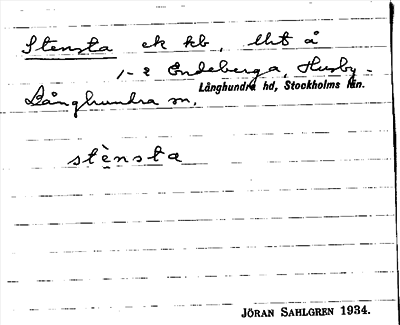 Stensta ek kb, lht å
1-2 Endeberga, Husby-
Långhundra hd, Stockholms län.
Långhundra sn.
stènsta
JÖRAN SAHLGREN 1934.